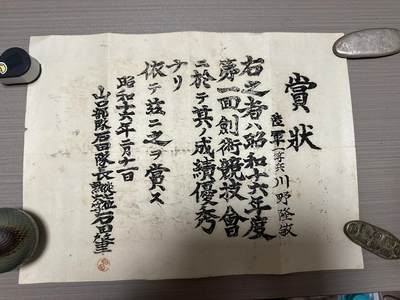 賞狀
陸軍一等兵 川野隆敏
右之者ハ昭和十六年度
第一回劍術競技會
ニ於テ其ノ成績優秀
ナリ
依テ茲ニ之ヲ賞ス
昭和十六年二月十一日
山口部隊石田隊長 石田